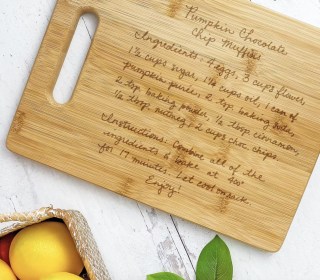 Pumpkin Chocolate
Chip Muffins
Ingredients: 4 eggs, 3 cups flower,
1½ cups sugar, 1¼ cups oil, 1 can of
pumpkin purée, 2 tsp baking soda,
2 tsp baking powder, ½ tbsp cinnamon,
½ tbsp nutmeg, 2 cups choc. chips.
Instructions: Combine all of the
ingredients & bake at 400°
for 17 minutes. Let cool on rack.
Enjoy!